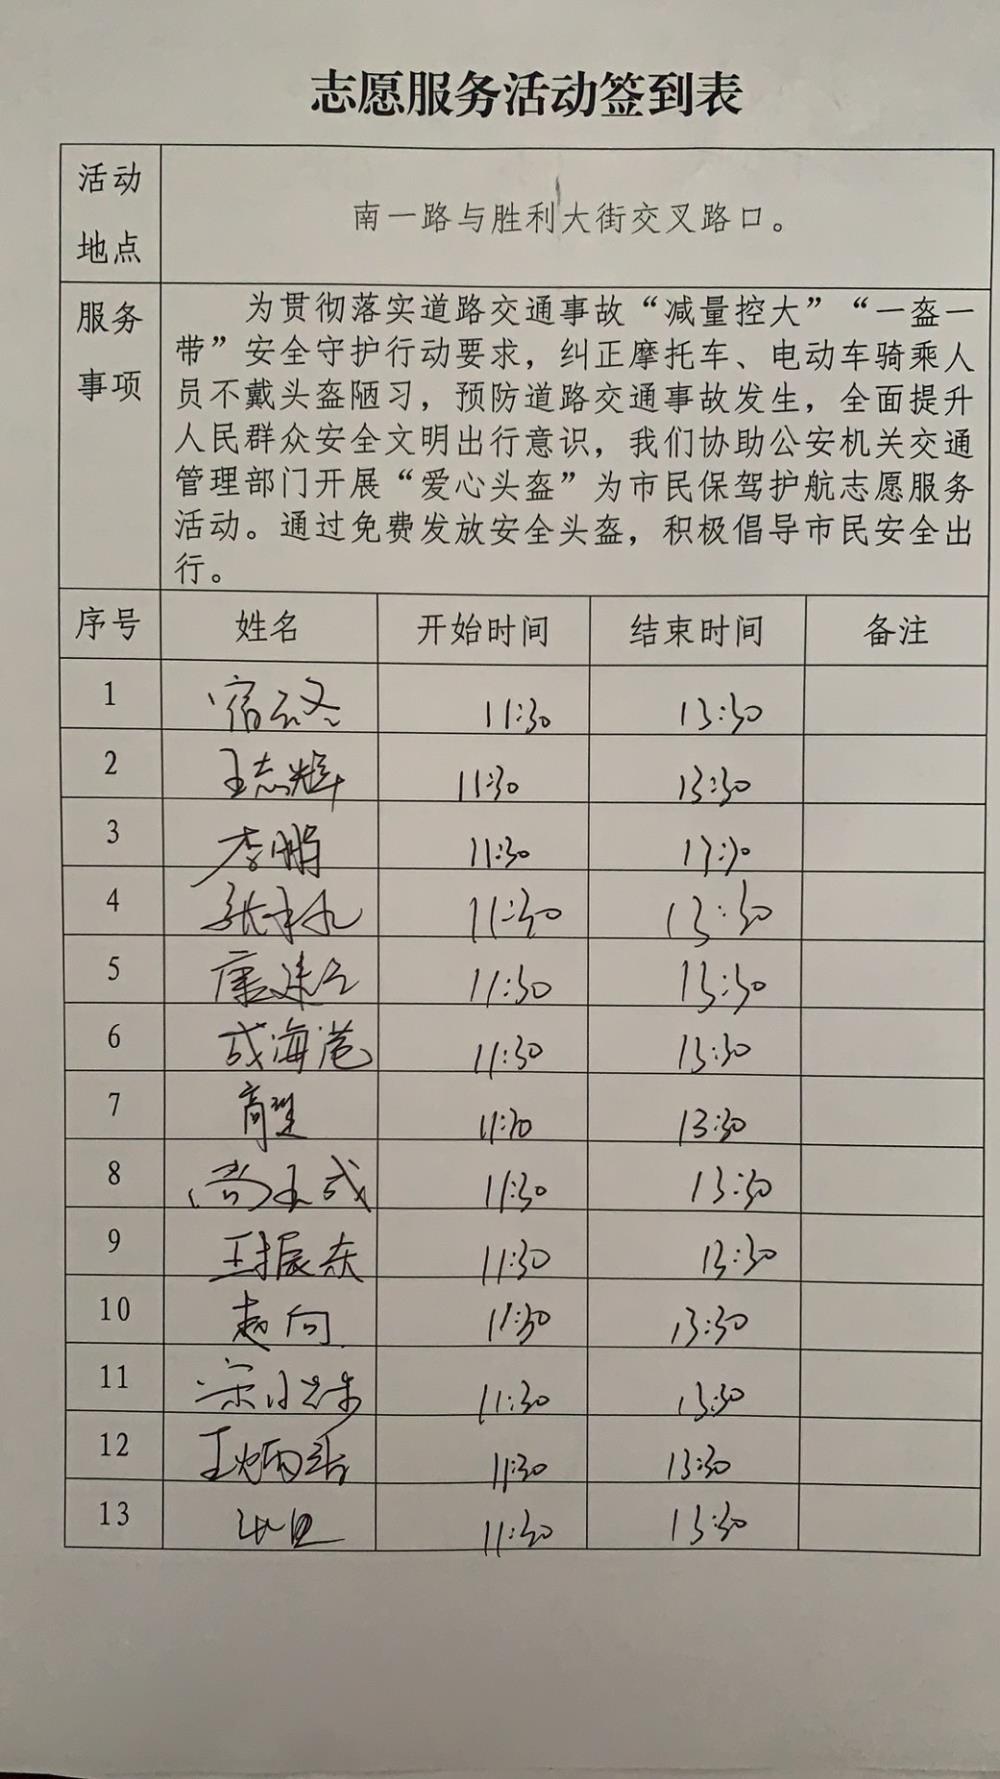 志愿服务活动签到表
活动地点
南一路与胜利大街交叉路口。
服务事项
为贯彻落实道路交通事故“减量控大”“一盔一
带”安全守护行动要求，纠正摩托车、电动车骑乘人
员不戴头盔陋习，预防道路交通事故发生，全面提升
人民群众安全文明出行意识，我们协助公安机关交通
管理部门开展“爱心头盔”为市民保驾护航志愿服务
活动。通过免费发放安全头盔，积极倡导市民安全出
行。
序号 姓名 开始时间 结束时间 备注
1 11:30 13:30
2 王志辉 11:30 13:30
3 李鹏 11:30 13:30
4 11:30 13:30
5 11:30 13:30
6 成海港 11:30 13:30
7 11:30 13:30
8 11:30 13:30
9 王振东 11:30 13:30
10 11:30 13:30
11 11:30 13:30
12 11:30 13:30
13 11:30 13:30